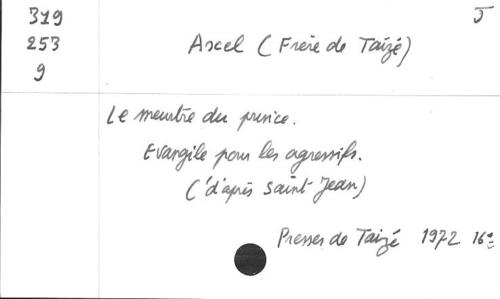 319
253
9
J
Axel (Frère de Taizé)
Le meurtre du prince.
Evangile pour les agressifs.
(d'après Saint Jean)
Presses de Taizé 1972 16°